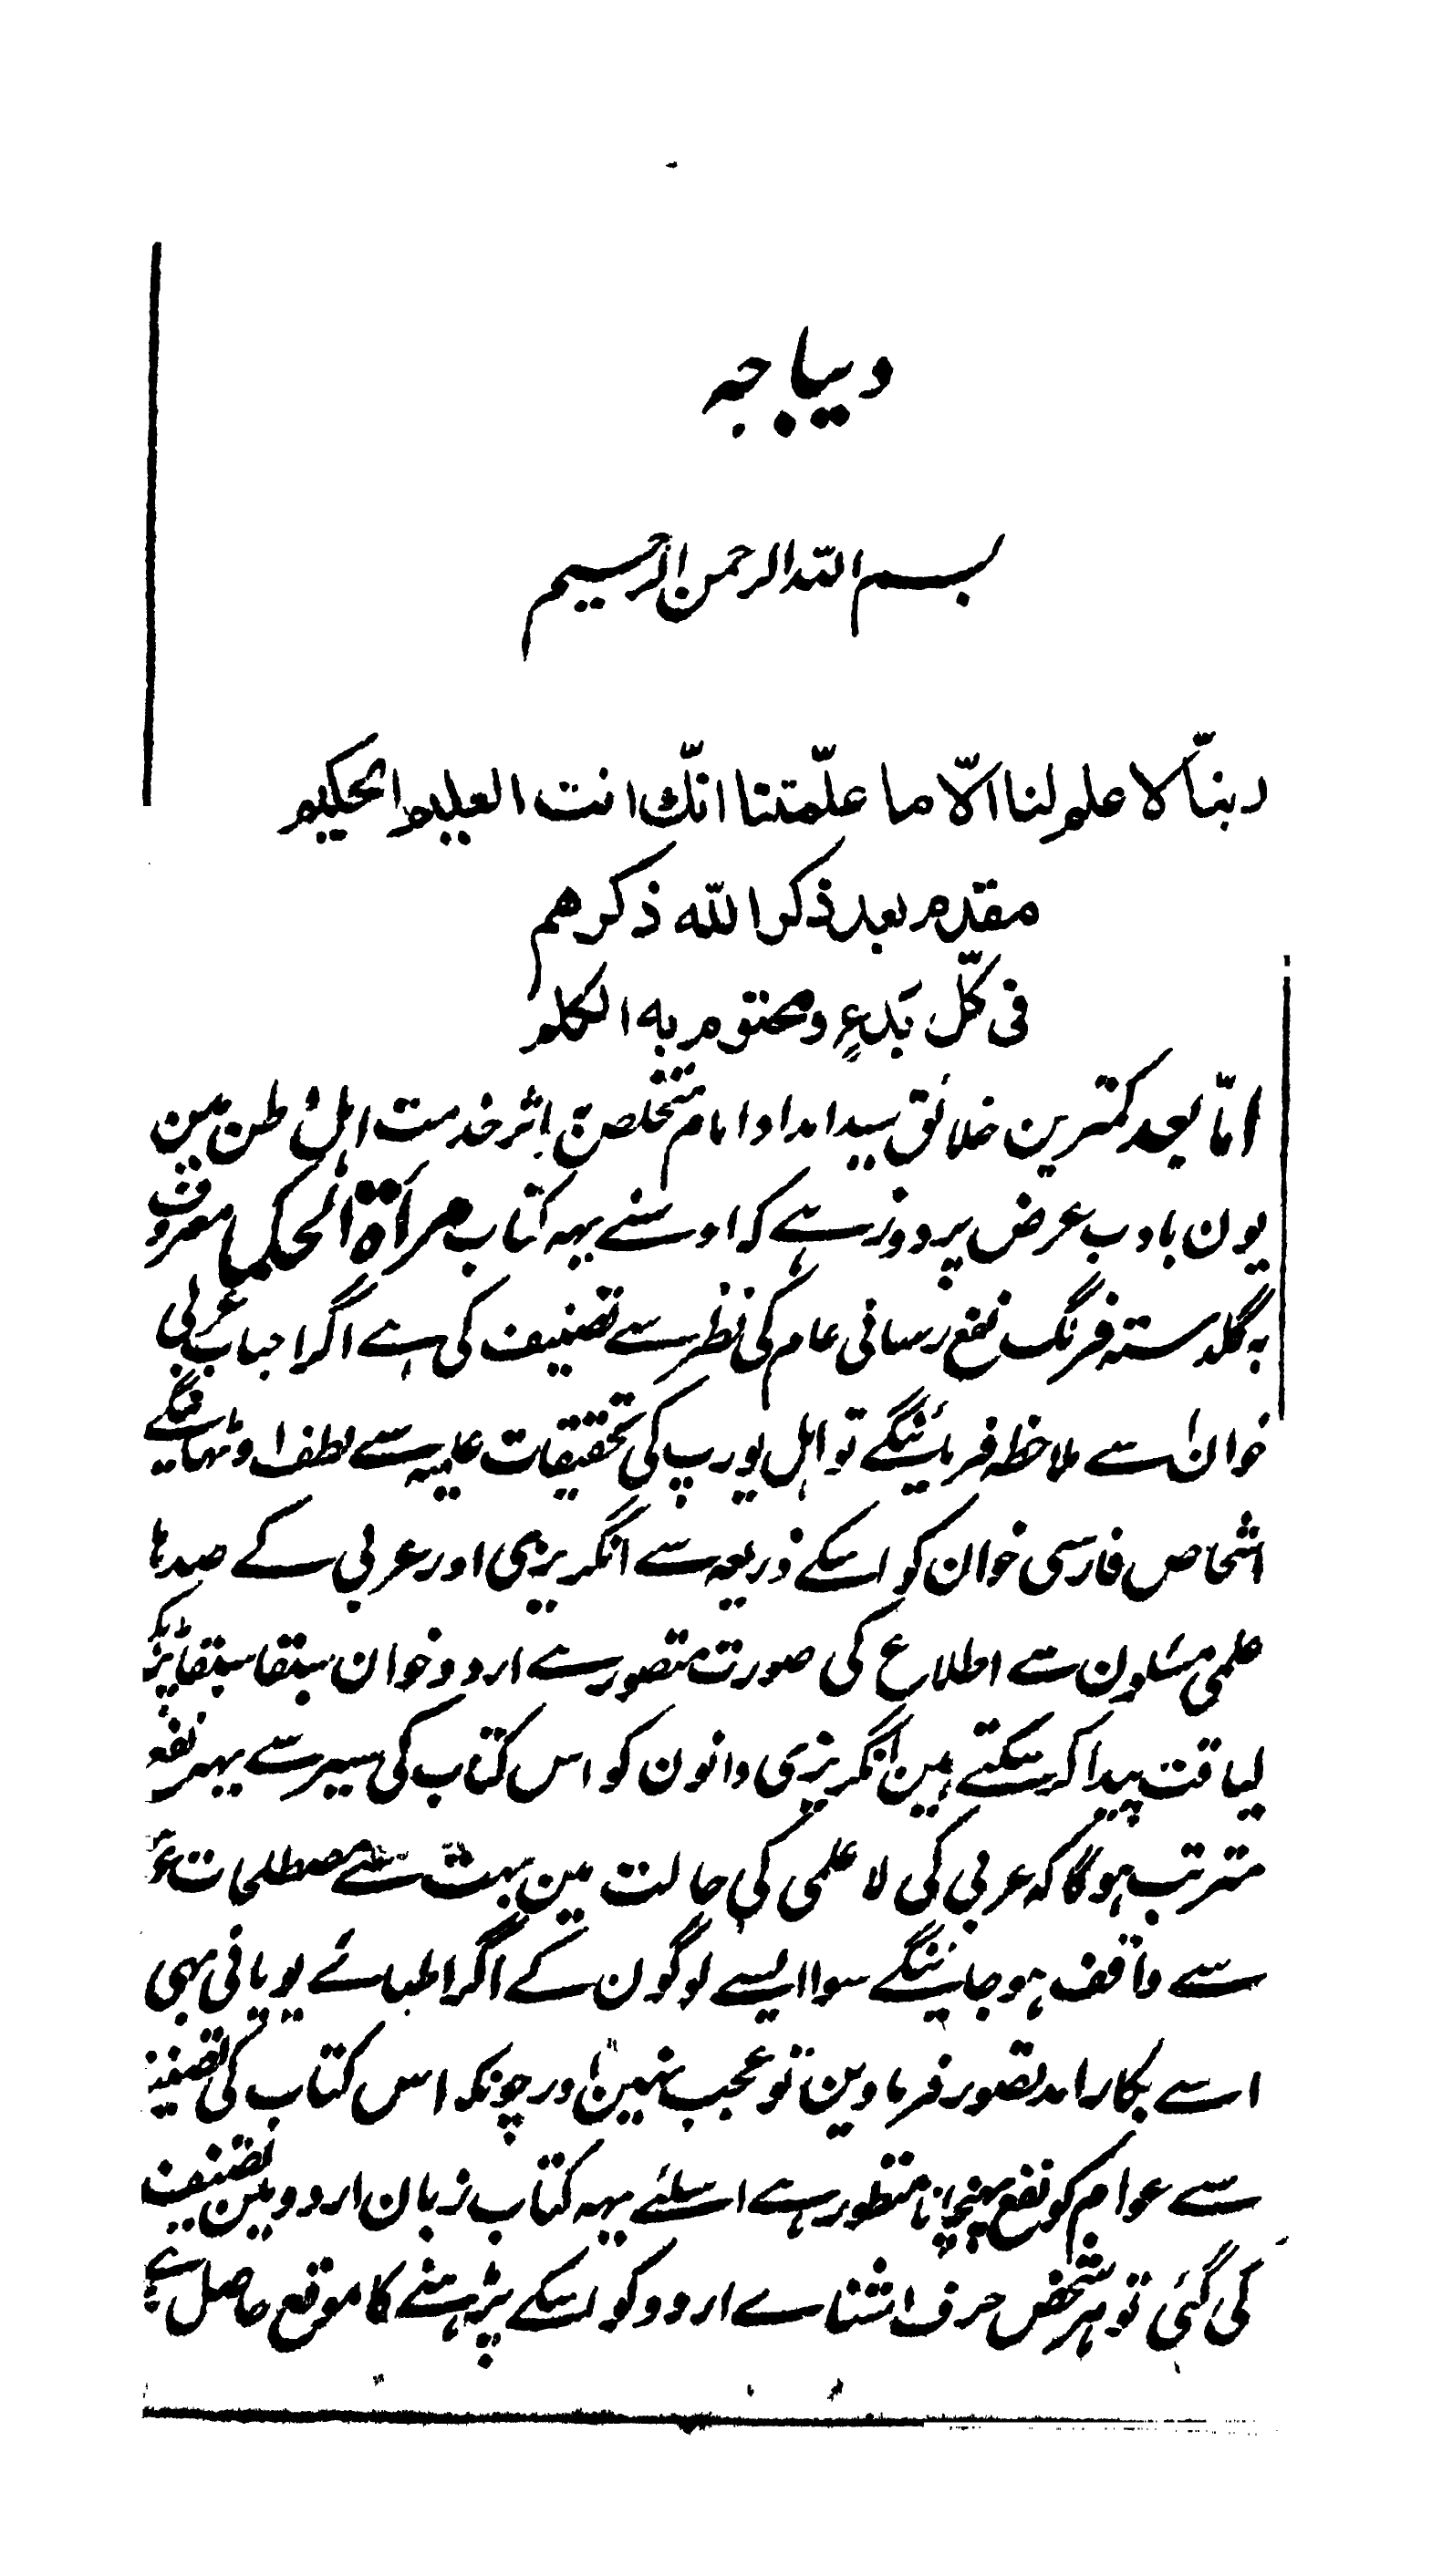 دیباجہ
بسم اللہ الرحمن الرحیم
ربنّا لا علم لنا الّا ما علّمتنا انّك انت العلیم الحکیم
مقدم بعد ذکر اللہ ذکرهم
فی کلّ بَدءٍ ومختوم به الکلم
امّا بعد کمترین خلائق سید امداد امام متخلص بہ اثر خدمت اہل وطن مین
یون بادب عرض پردوز ہے کہ اوسنے یہہ کتاب مرآة الحکما معروف
بہ گلدستہ فرنگ نفع رسانی عام کی نظر سے تصنیف کی ہے اگر احباب عربی
خوان اسے ملاحظہ فرمائینگے تو اہل یورپ کی تحقیقات علمیہ سے لطف اوٹھائینگے
اشخاص فارسی خوان کو اسکے ذریعہ سے انگریزی اور عربی کے صدہا
علمی مسئلون سے اطلاع کی صورت متصور ہے اردو خوان سبقا سبقا پڑہکر
لیاقت پیدا کر سکتے ہین انگریزی دانون کو اس کتاب کی سیر سے یہہ نفع
مترتب ہوگا کہ عربی کی لا علمی کی حالت مین بہت سے مصطلحات
سے واقف ہو جائینگے سوا ایسے لوگون کے اگر اطبائے یونانی بھی
اسے بکار امد تصور فرماوین تو عجب نہین اور چونکہ اس کتاب کی تصنیف
سے عوام کو نفع پہنچانا منظور ہے اسلئے یہہ کتاب زبان اردو مین تصنیف
کی گئی تو ہر شخص حرف اشناے اردو کو اسکے پڑہنے کا موقع حاصل ہے